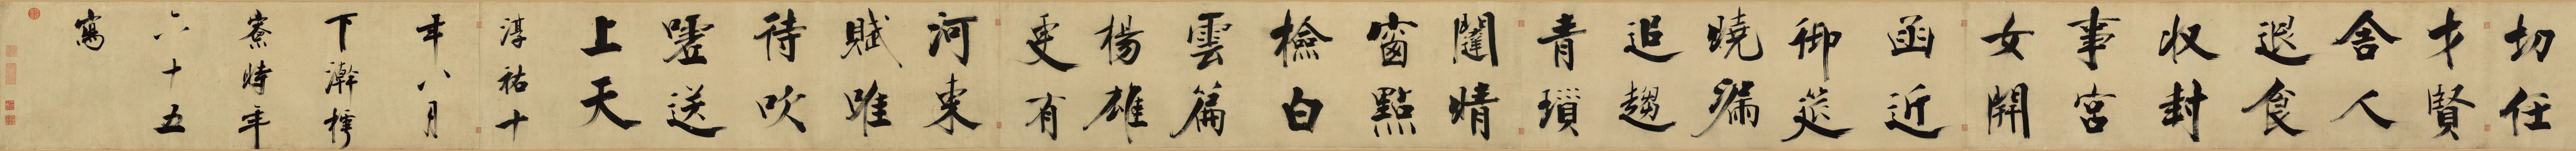 切任
才賢
舍人
退食
収封
事宮
女開
函近
御筵
曉漏
追趨
青瑣
闥晴
窗點
檢白
雲篇
楊雄
更有
河東
賦唯
待吹
噓送
上天
淳祐十
年八月
下澣樗
寮時年
六十五
寫